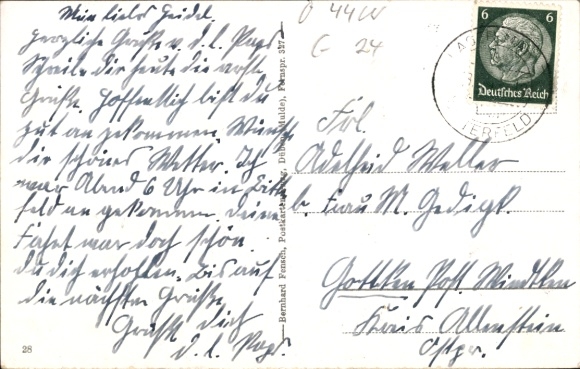 Mein liebes Heidel.
Herzliche Grüße v. d. l. Papa
Schreibe dir heute die ersten
Grüße. Hoffentlich bist du
gut angekommen. Wünsche
dir schönes Wetter. Ich
war Abend 6 Uhr in
feld angekommen. Deine
Fahrt war doch schön.
du dich erholen. Bis auf
die nächsten Grüße
Grüßt dich
d. l. Papa.
28
Bernhard Fensch, Postkartenverlag, Döbern (Mulde), Fernspr. 327
O 44W
G- 24
6 6
Deutsches Reich
TERFELD
Frl.
Adelheid Weller
b. Frau M. Gedigk.
Gottken Post Windtken
Kreis Allenstein
Ostpr.